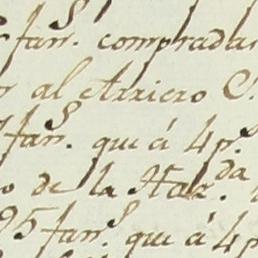 fan.s compradas
al Arriero C.
fan.s que á 4 p.s
o de la Haz.da
95 fan.s que á 4 p